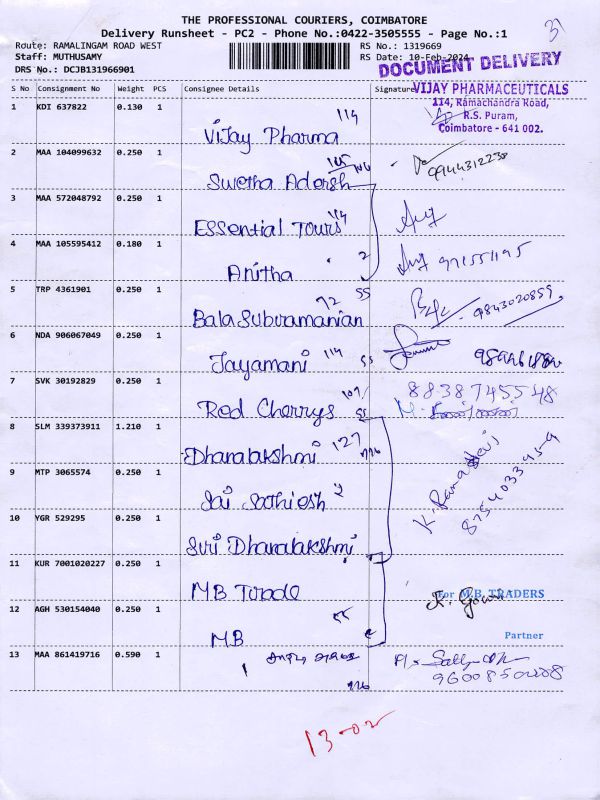 THE PROFESSIONAL COURIERS, COIMBATORE
Delivery Runsheet - PC2 - Phone No.:0422-3505555 - Page No.:1
31
Route: RAMALINGAM ROAD WEST RS No.: 1319669
Staff: MUTHUSAMY RS Date: 10-Feb-2024
DRS No.: DCJB131966901
DOCUMENT DELIVERY
S No Consignment No Weight PCS Consignee Details Signature
VIJAY PHARMACEUTICALS
114, Ramachandra Road,
R.S. Puram,
Coimbatore - 641 002.
1 KDI 637822 0.130 1 Vijay Pharma 114
2 MAA 104099632 0.250 1 Swetha Adersh 106 09144312238
3 MAA 572048792 0.250 1 Essential Tours 114
4 MAA 105595412 0.180 1 Anitha 2
5 TRP 4361901 0.250 1 Bala Subramanian 72 55 9843020859
6 NDA 906067049 0.250 1 Jayamani 114 55
7 SVK 30192829 0.250 1 Red Cherrys 107 55 8838745548
8 SLM 339373911 1.210 1 Dhanalakshmi 127
9 MTP 3065574 0.250 1 Sai Sathiesh 2 K. Ramadevi
8754033959
10 YGR 529295 0.250 1 Sri Dhanalakshmi
11 KUR 7001020227 0.250 1 MB Trade For M.B. TRADERS
K. Gowri
12 AGH 530154040 0.250 1 MB 55 Partner
13 MAA 861419716 0.590 1
13-02